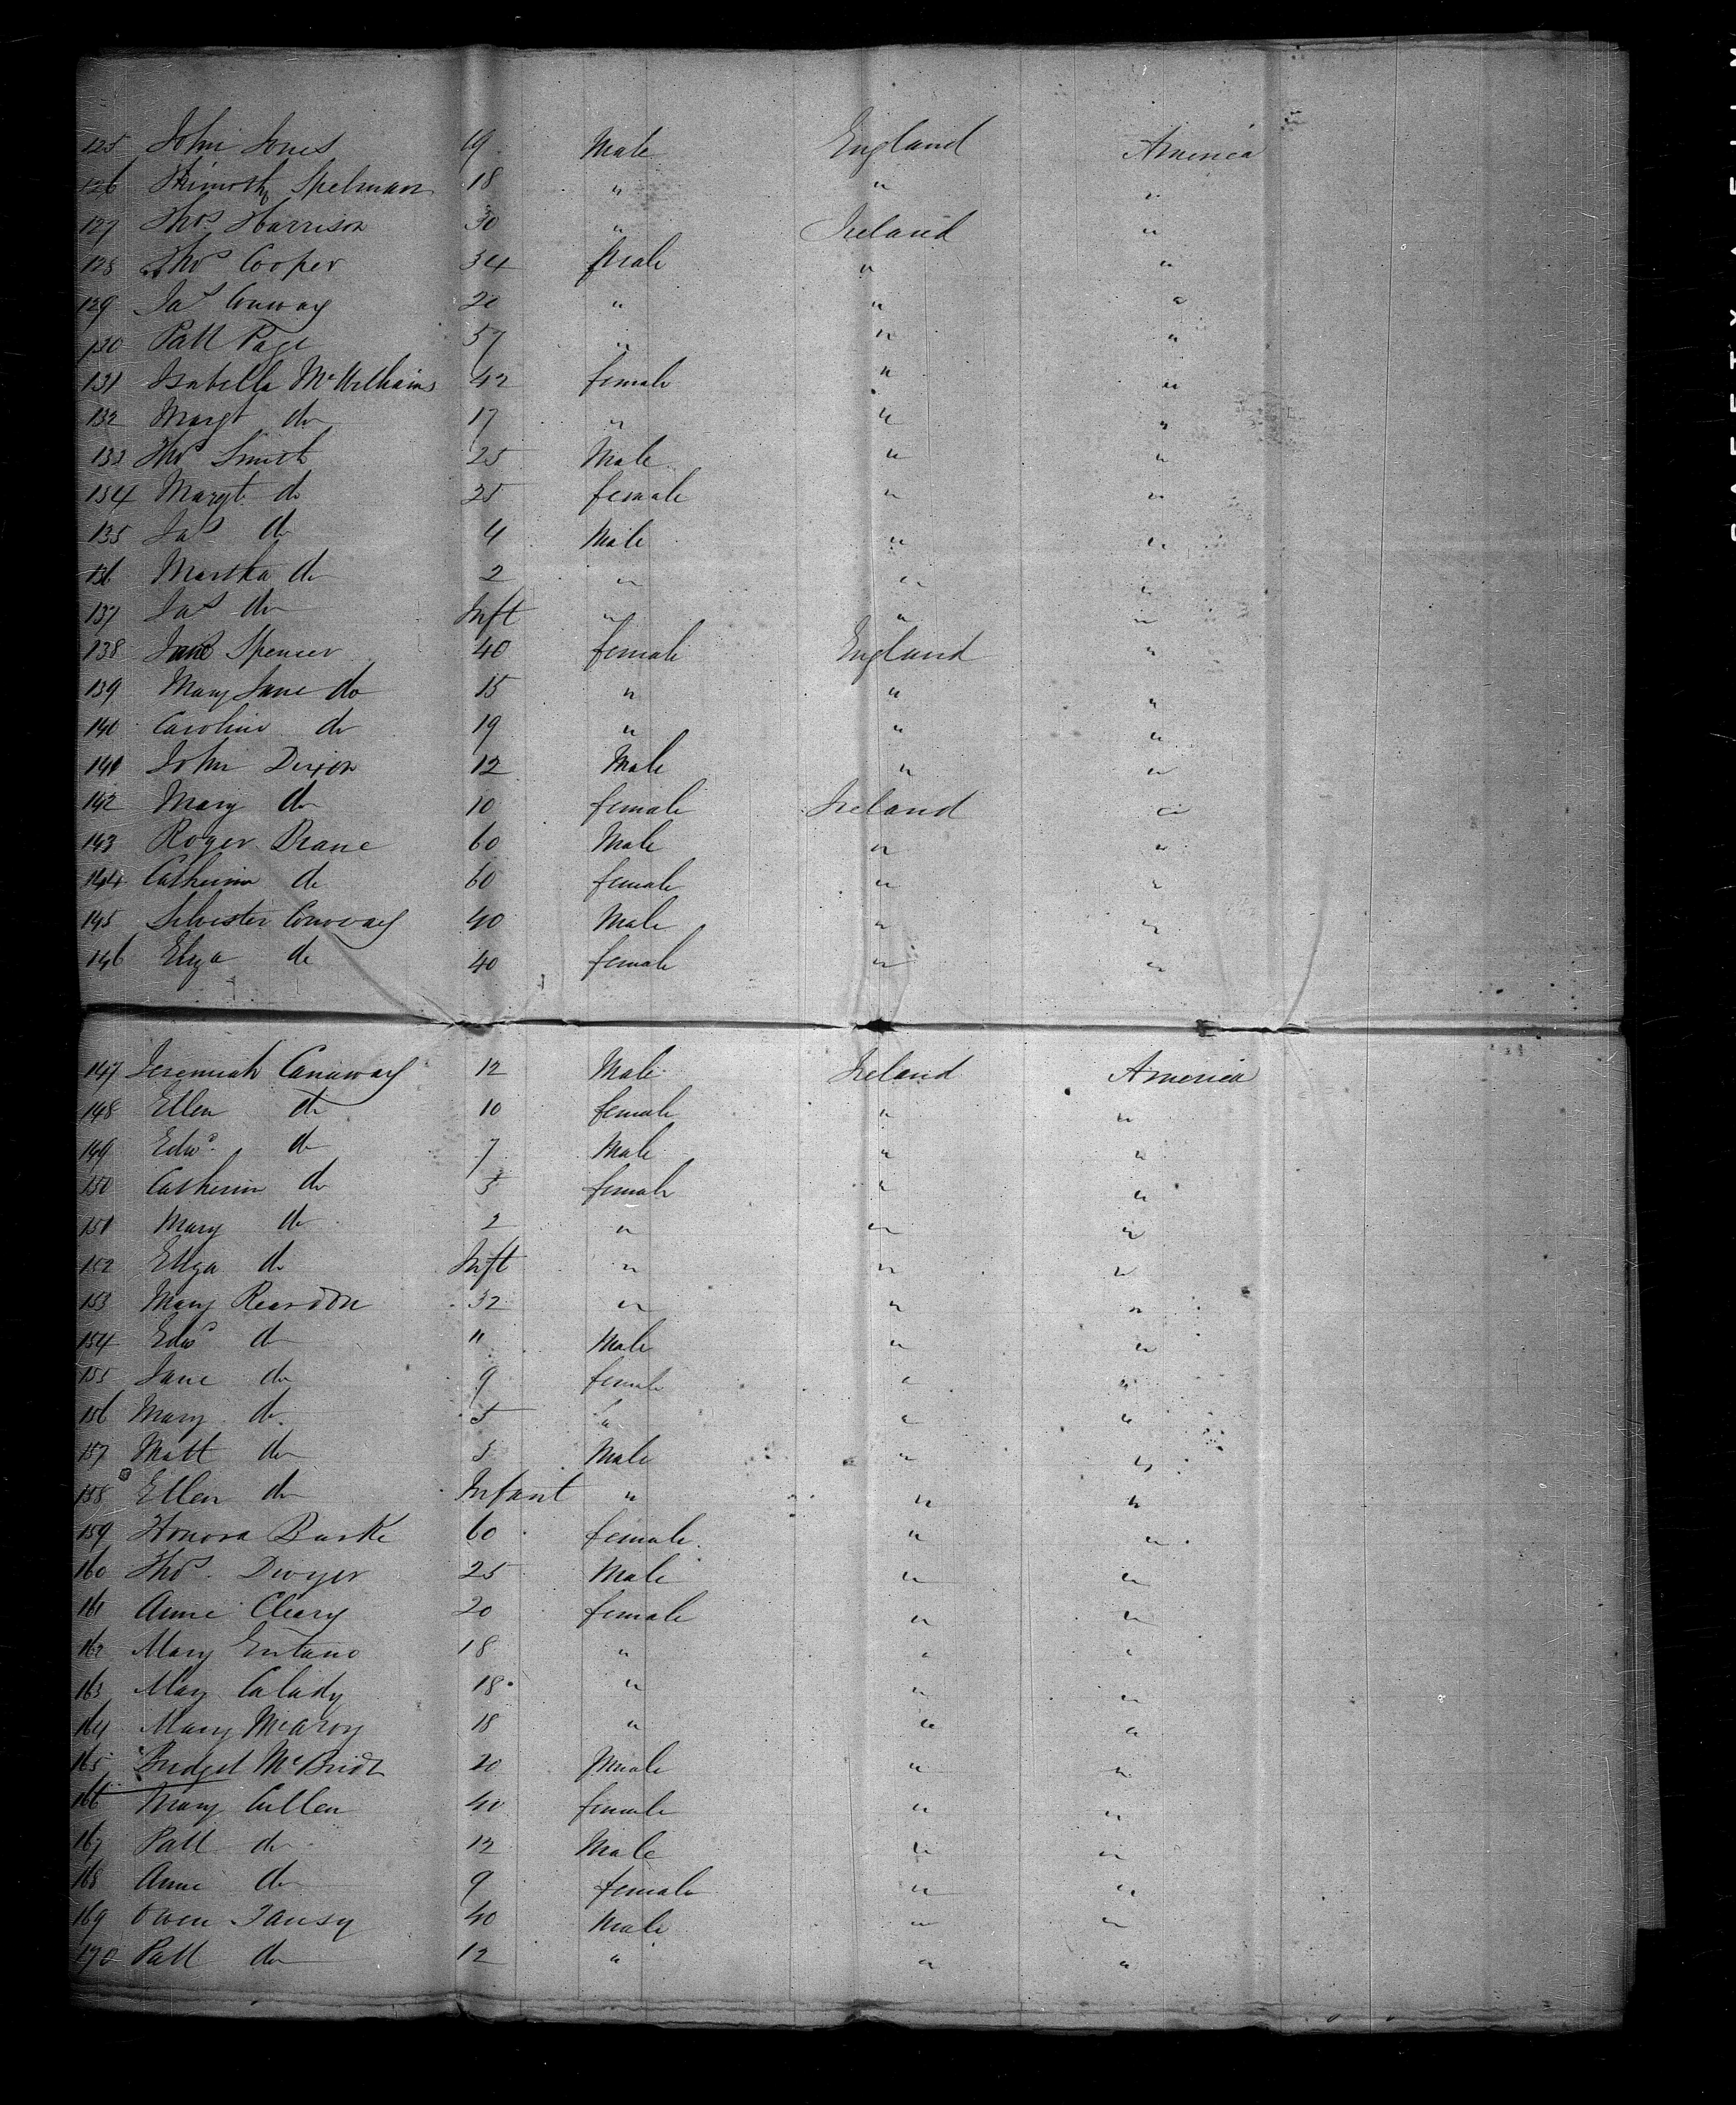 125 John Jones 19 Male England America
126 Thimothy Spelman 18 " " "
127 Thos Harrison 30 " Ireland "
128 Thos Cooper 34 Male " "
129 Jas Conway 20 " " "
130 Patt Page 57 " " "
131 Isabella McWilliams 42 female " "
132 Margt do 17 " " "
133 Thos Smith 25 Male " "
134 Margt do 25 female " "
135 Jas do 4 Male " "
136 Martha do 2 " " "
137 Jas do Inft " " "
138 Jane Spencer 40 female England "
139 Mary Jane do 15 " " "
140 Caroline do 19 " " "
141 John Dixon 12 Male " "
142 Mary do 10 female Ireland "
143 Roger Drane 60 Male " "
144 Catherine do 60 female " "
145 Silvester Conway 40 Male " "
146 Eliza do 40 female " "
147 Jeremiah Canaway 12 Male Ireland America
148 Ellen do 10 female " "
149 Edwd do 7 Male " "
150 Catherine do 5 female " "
151 Mary do 2 " " "
152 Eliza do Inft " " "
153 Mary Reardon 32 " " "
154 Edwd do 11 Male " "
155 Jane do 9 female " "
156 Mary do 5 " " "
157 Matt do 3 Male " "
158 Ellen do Infant " " "
159 Honora Burke 60 female " "
160 Thos Dwyer 25 Male " "
161 Anne Cleary 20 female " "
162 Mary 18 " " "
163 Mary Calady 18 " " "
164 Mary McAroy 18 " " "
165 Bridget McBride 20 " "
166 Mary Cullen 40 female " "
167 Patt do 12 Male " "
168 Anne do 9 female " "
169 Owen Tansy 40 Male " "
170 Patt do 12 " " "